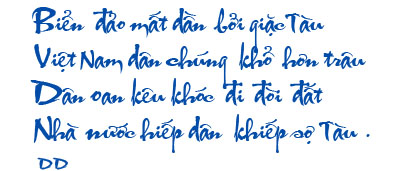 Biển đảo mất dần bởi giặc Tàu
Việt Nam dân chúng khổ hơn trâu
Dân oan kêu khóc đi đòi đất
Nhà nước hiếp dân khiếp sợ Tàu .
DD